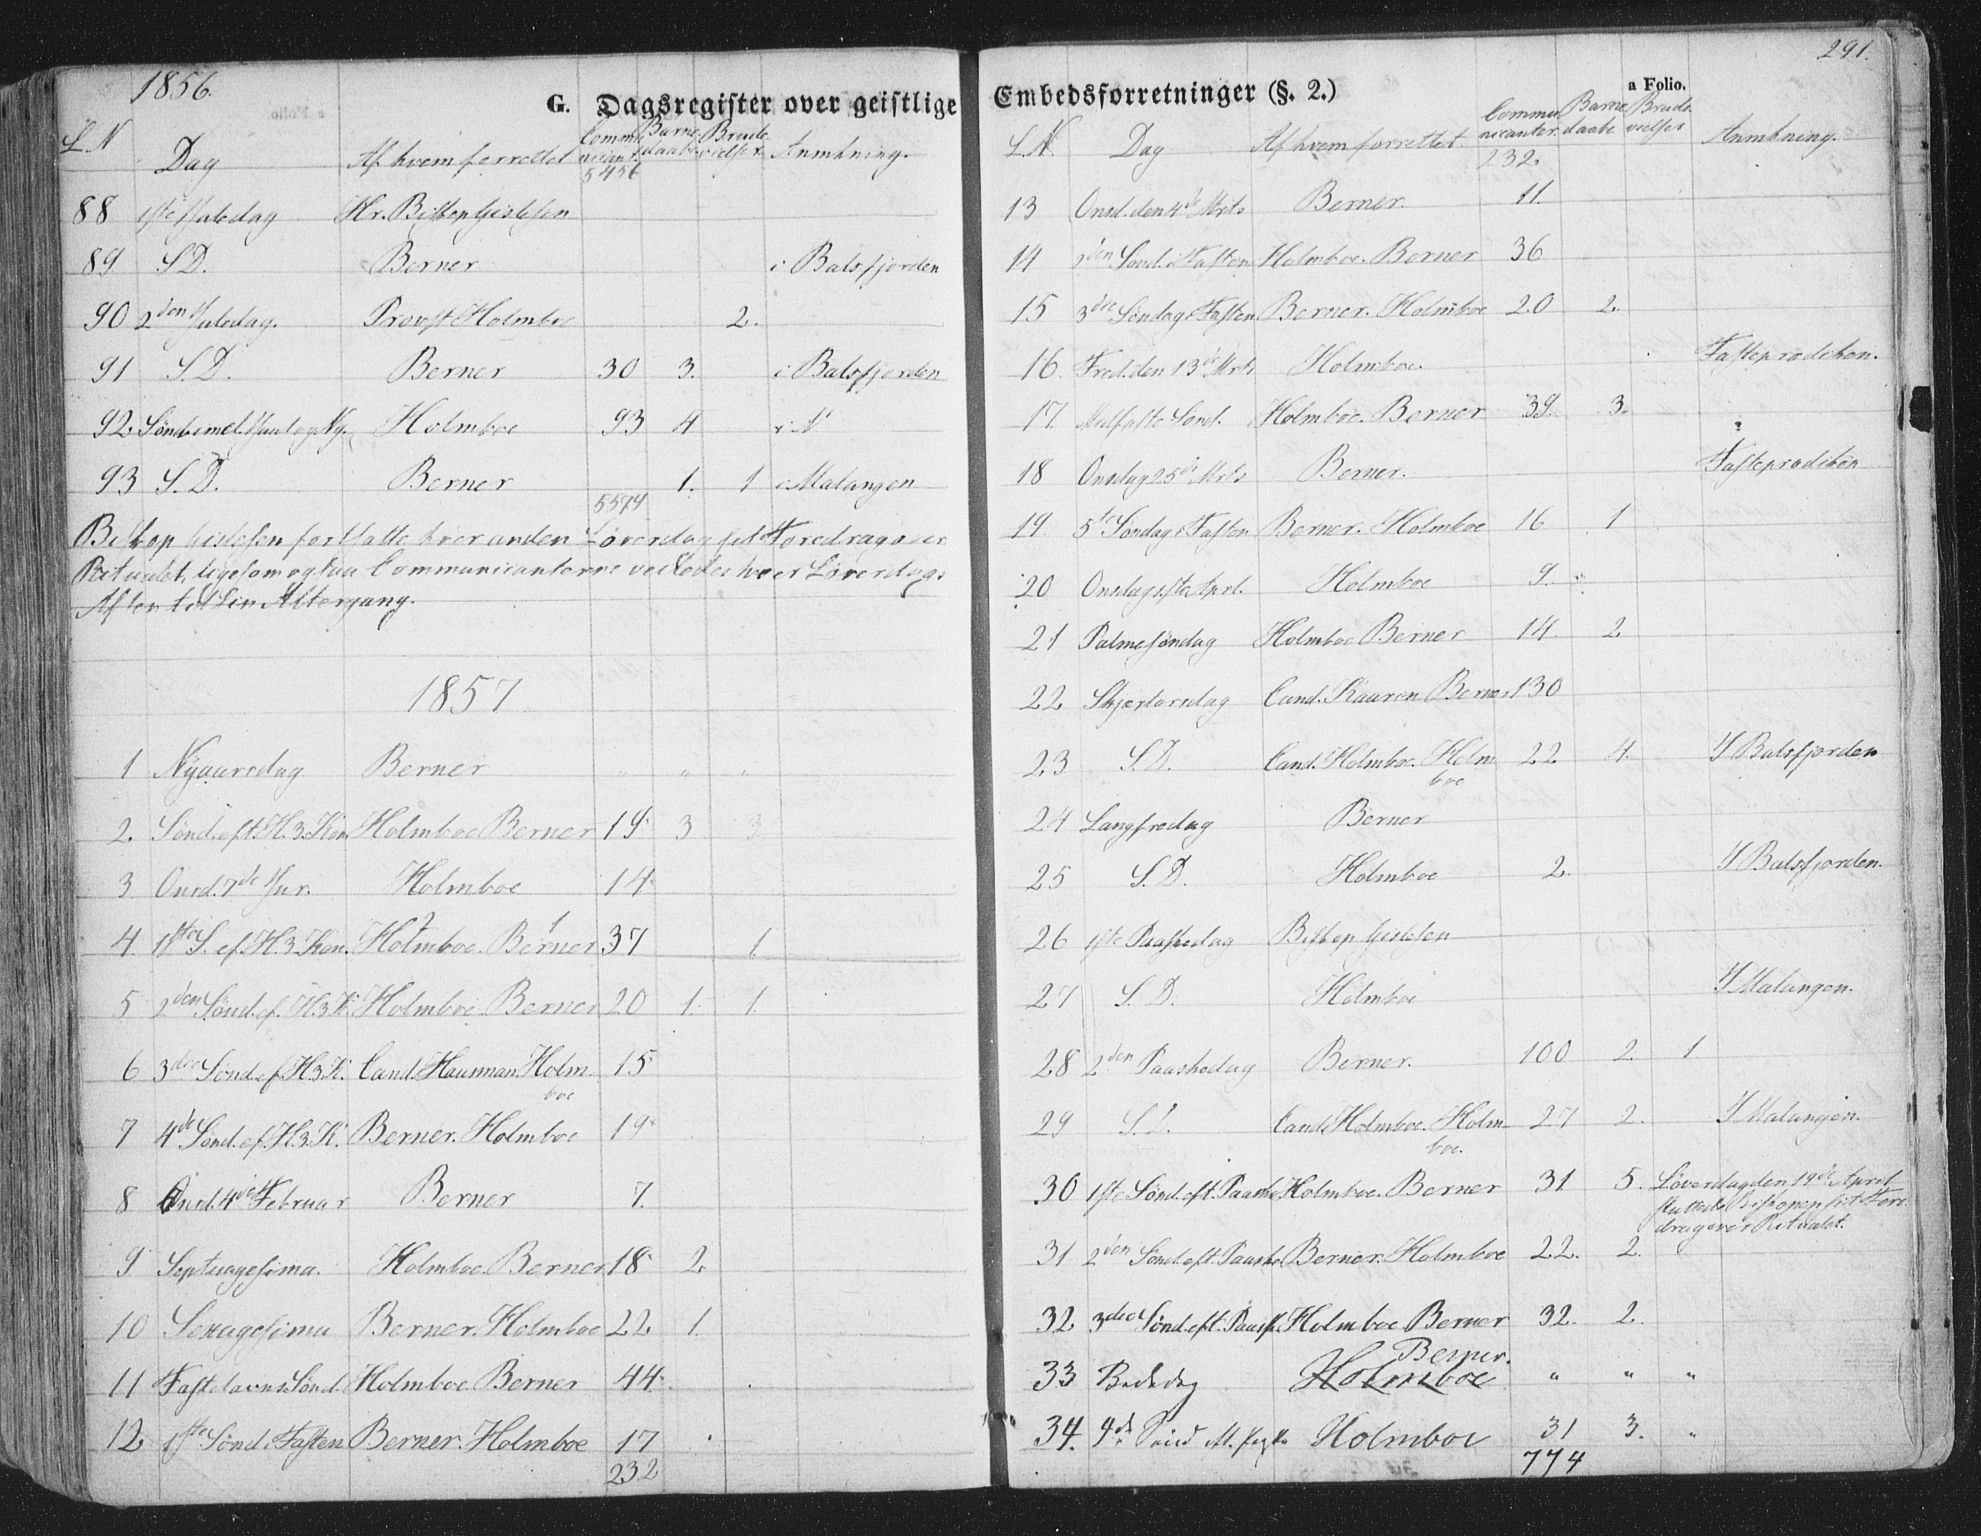 1856.
G. Dagsregister over geistlige
L.N Dag Af hvem forrettet Communicant. Barnedaab Brudevielser Anmkning.
5456
88 1ste Juledag Hr. Biskop Gislesen
89 S.D. Berner i Balsfjorden
90 2den Juledag. Provst Holmboe 2.
91 S.D. Berner 30 3. i Balsfjorden
92 Holmboe 93 4
93 S.D. Berner 1. 1 i Malangen
5574
Biskop Gislesen fortsatte hver anden Løverdag sit Foredrag over
Ritualet, ligesom ogsaa Communicanterne veiledes hver Løverdags
Aften til sin Altergang.
1857
1 Nyaarsdag Berner " " "
2. Sönd. eft. H.3.Kon Holmboe Berner 19. 3 3
3 Onsd. 7de Jnr. Holmboe 14.
4. 1ste S. ef. H.3.Kon. Holmboe. Berner 37 1
5 2den Sönd. ef. H.3.K. Holmboe Berner 20 1. 1.
6 3die Sönd. ef. H.3.K. Cand. Haunman. Holm 15
boe
7 4de Sönd. ef. H.3.K. Berner. Holmboe 19.
8 Onsd. 4de Februar Berner 7.
9 Septuagesima. Holmboe. Berner 18. 2
10 Sexagesima Berner. Holmboe 22 1.
11 Fastelavns Sönd. Holmboe. Berner 44.
12 1ste Sönd. i Fasten Berner. Holmboe 17
232
291.
Embedsforretninger (§. 2.)
a Folio.
L.N. Dag Af hvem forrettet. Communicanter. Barnedaabe Brudevielser Anmkning.
232.
13 Onsd. den 4de Mrts Berner. 11.
14 2den Sönd. i Fasten Holmboe. Berner 36
15 3die Söndag i Fasten Berner. Holmboe 20 2.
16. Fred. den 13de Mrts Holmboe. Fasteprædiken.
17. Midfaste Sönd. Holmboe. Berner 39. 3.
18 Onsdag 25de Mrts Berner. Fasteprædiken
19. 5te Söndag i Fasten Berner. Holmboe 16 1
20 Onsdag 1ste Aprl. Holmboe 9.
21 Palmesöndag Holmboe Berner 14. 2
22 Skjærtorsdag Cand. Kauren Berner 130
23 S.D. Cand. Holmboe. Holm 22 4. I Balsfjorden
boe
24 Langfredag Berner
25 S.D. Holmboe 2. I Balsfjorden.
26 1ste Paaskedag Biskop Gislesen
27 S.D. Holmboe I Malangen.
28 2den Paaskedag Berner. 100 2. 1
29 S.D. Cand. Holmboe. Holm 27 2. I Malangen.
boe.
30 1ste Sönd. eft. Paaske Holmboe. Berner 31 5. Løverdag den 19de April
sluttede Biskopen sit Fore
drag over Ritualet.
31 2den Sönd. eft. Paaske Berner. Holmboe 22. 2.
32 3die Sönd. eft. Paask. Holmboe Berner 32. 2.
Berner.
33 Bededag Holmboe " " "
34. 4de Sönd eft. Paaske Holmboe 31 3. "
774